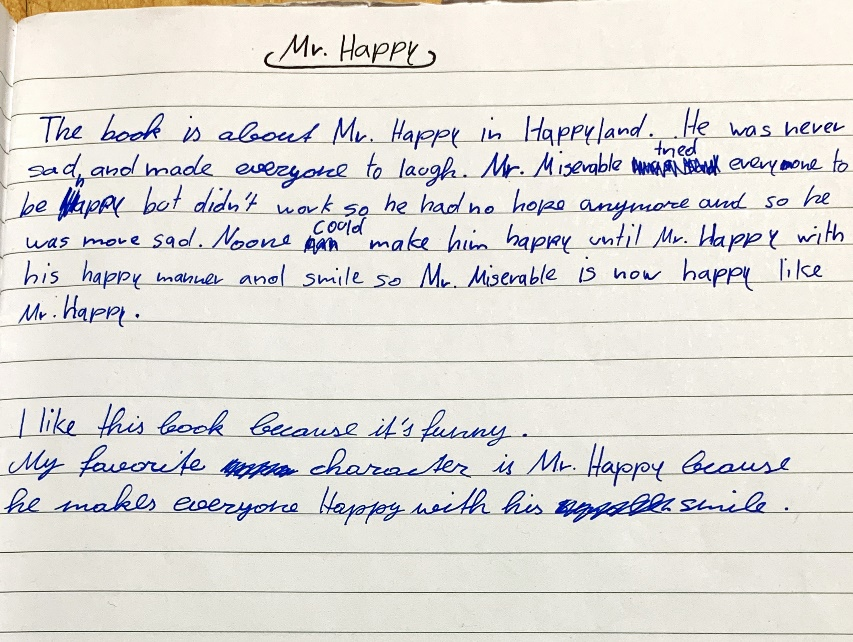 Mr. Happy
The book is about Mr. Happy in Happyland. He was never
sad, and made everyone to laugh. Mr. Miserable tried everyone to
be happy but didn't work so he had no hope anymore and so he
was more sad. Noone could make him happy until Mr. Happy with
his happy manner and smile so Mr. Miserable is now happy like
Mr. Happy.
I like this book because it's funny.
My favorite character is Mr. Happy because
he makes everyone Happy with his smile.